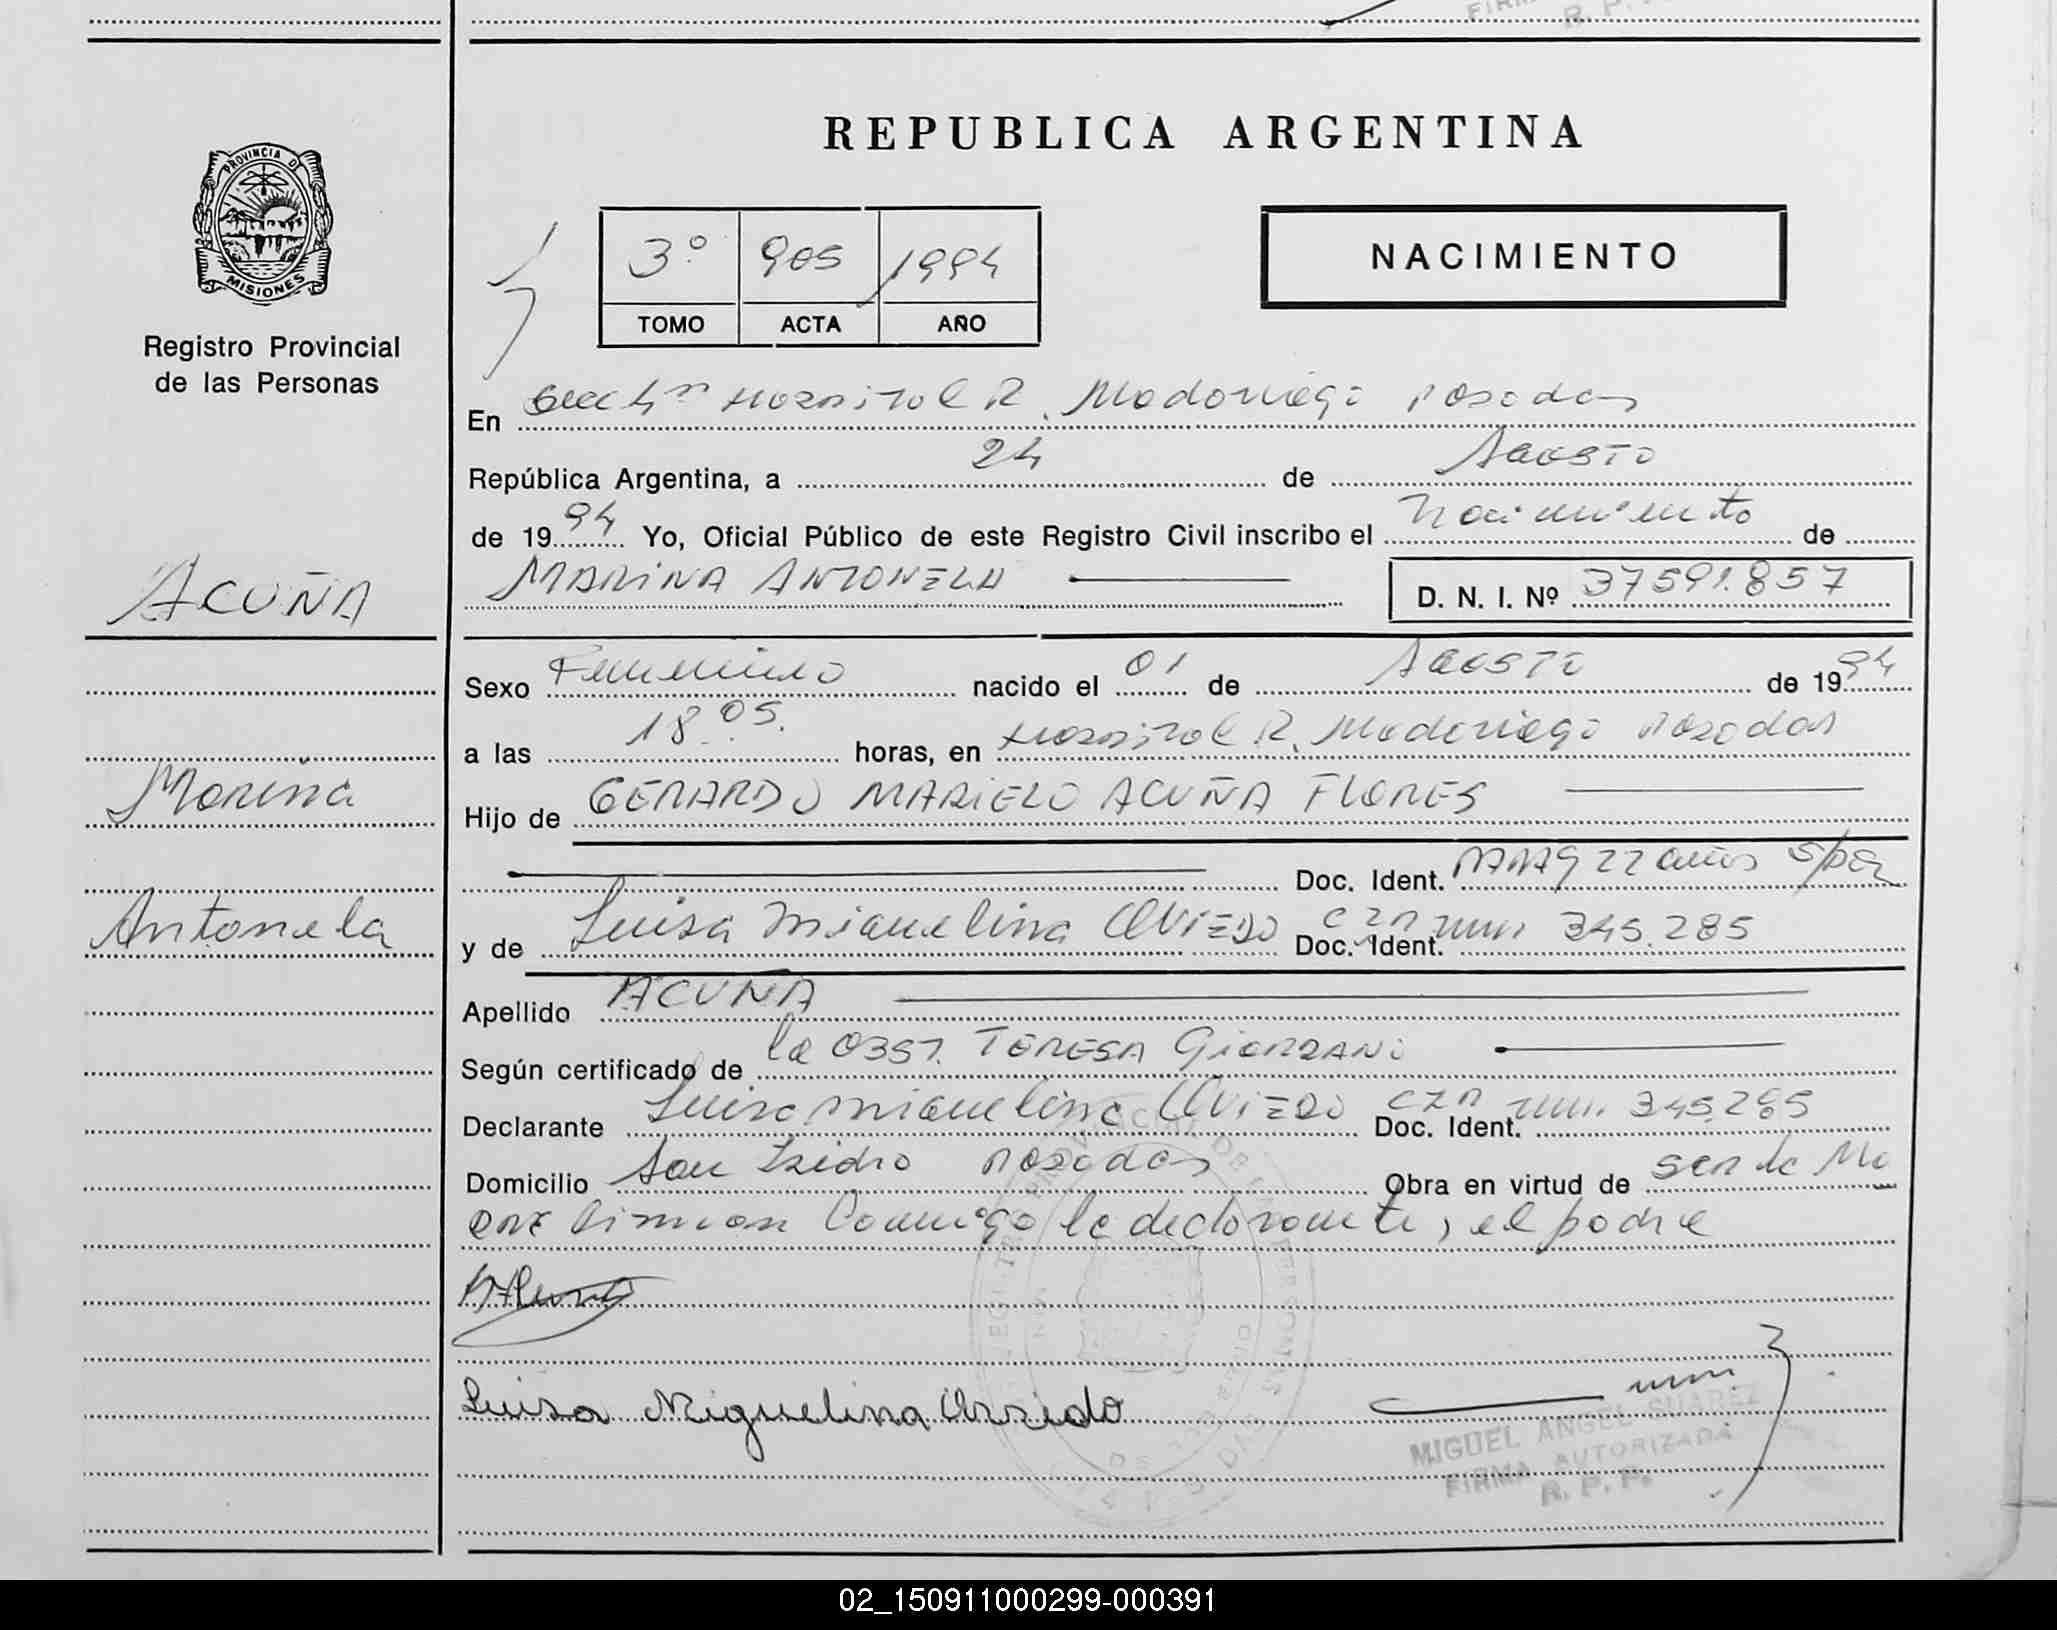 FIRM
R. P.
REPUBLICA ARGENTINA
PROVINCIA DE
MISIONES
Registro Provincial
de las Personas
3º 905 1994
TOMO ACTA AÑO
NACIMIENTO
En Hospital R. Madariaga Posadas
República Argentina, a 24 de Agosto
de 1994 Yo, Oficial Público de este Registro Civil inscribo el Nacimiento de
ACUÑA
MARINA ANTONELA
D. N. I. Nº 37591.857
Sexo Femenino nacido el 01 de Agosto de 1994
a las 18.05. horas, en Hospital R. Madariaga Posadas
Marina
Hijo de GERARDO MARIELO ACUÑA FLORES
Doc. Ident. 22 años
Antonela
y de Luisa Miguelina OVIEDO Doc. Ident. 345.285
Apellido ACUÑA
Según certificado de la OBST. TERESA GIORDANO
Declarante Luisa Miguelina OVIEDO Doc. Ident. 345285
Domicilio San Isidro Posadas Obra en virtud de ser la Ma
DRE Firman Conmigo la declarante, el padre
Luisa Miguelina Oviedo
MIGUEL ANGEL SUAREZ
FIRMA AUTORIZADA
R. P. P.
02_150911000299-000391